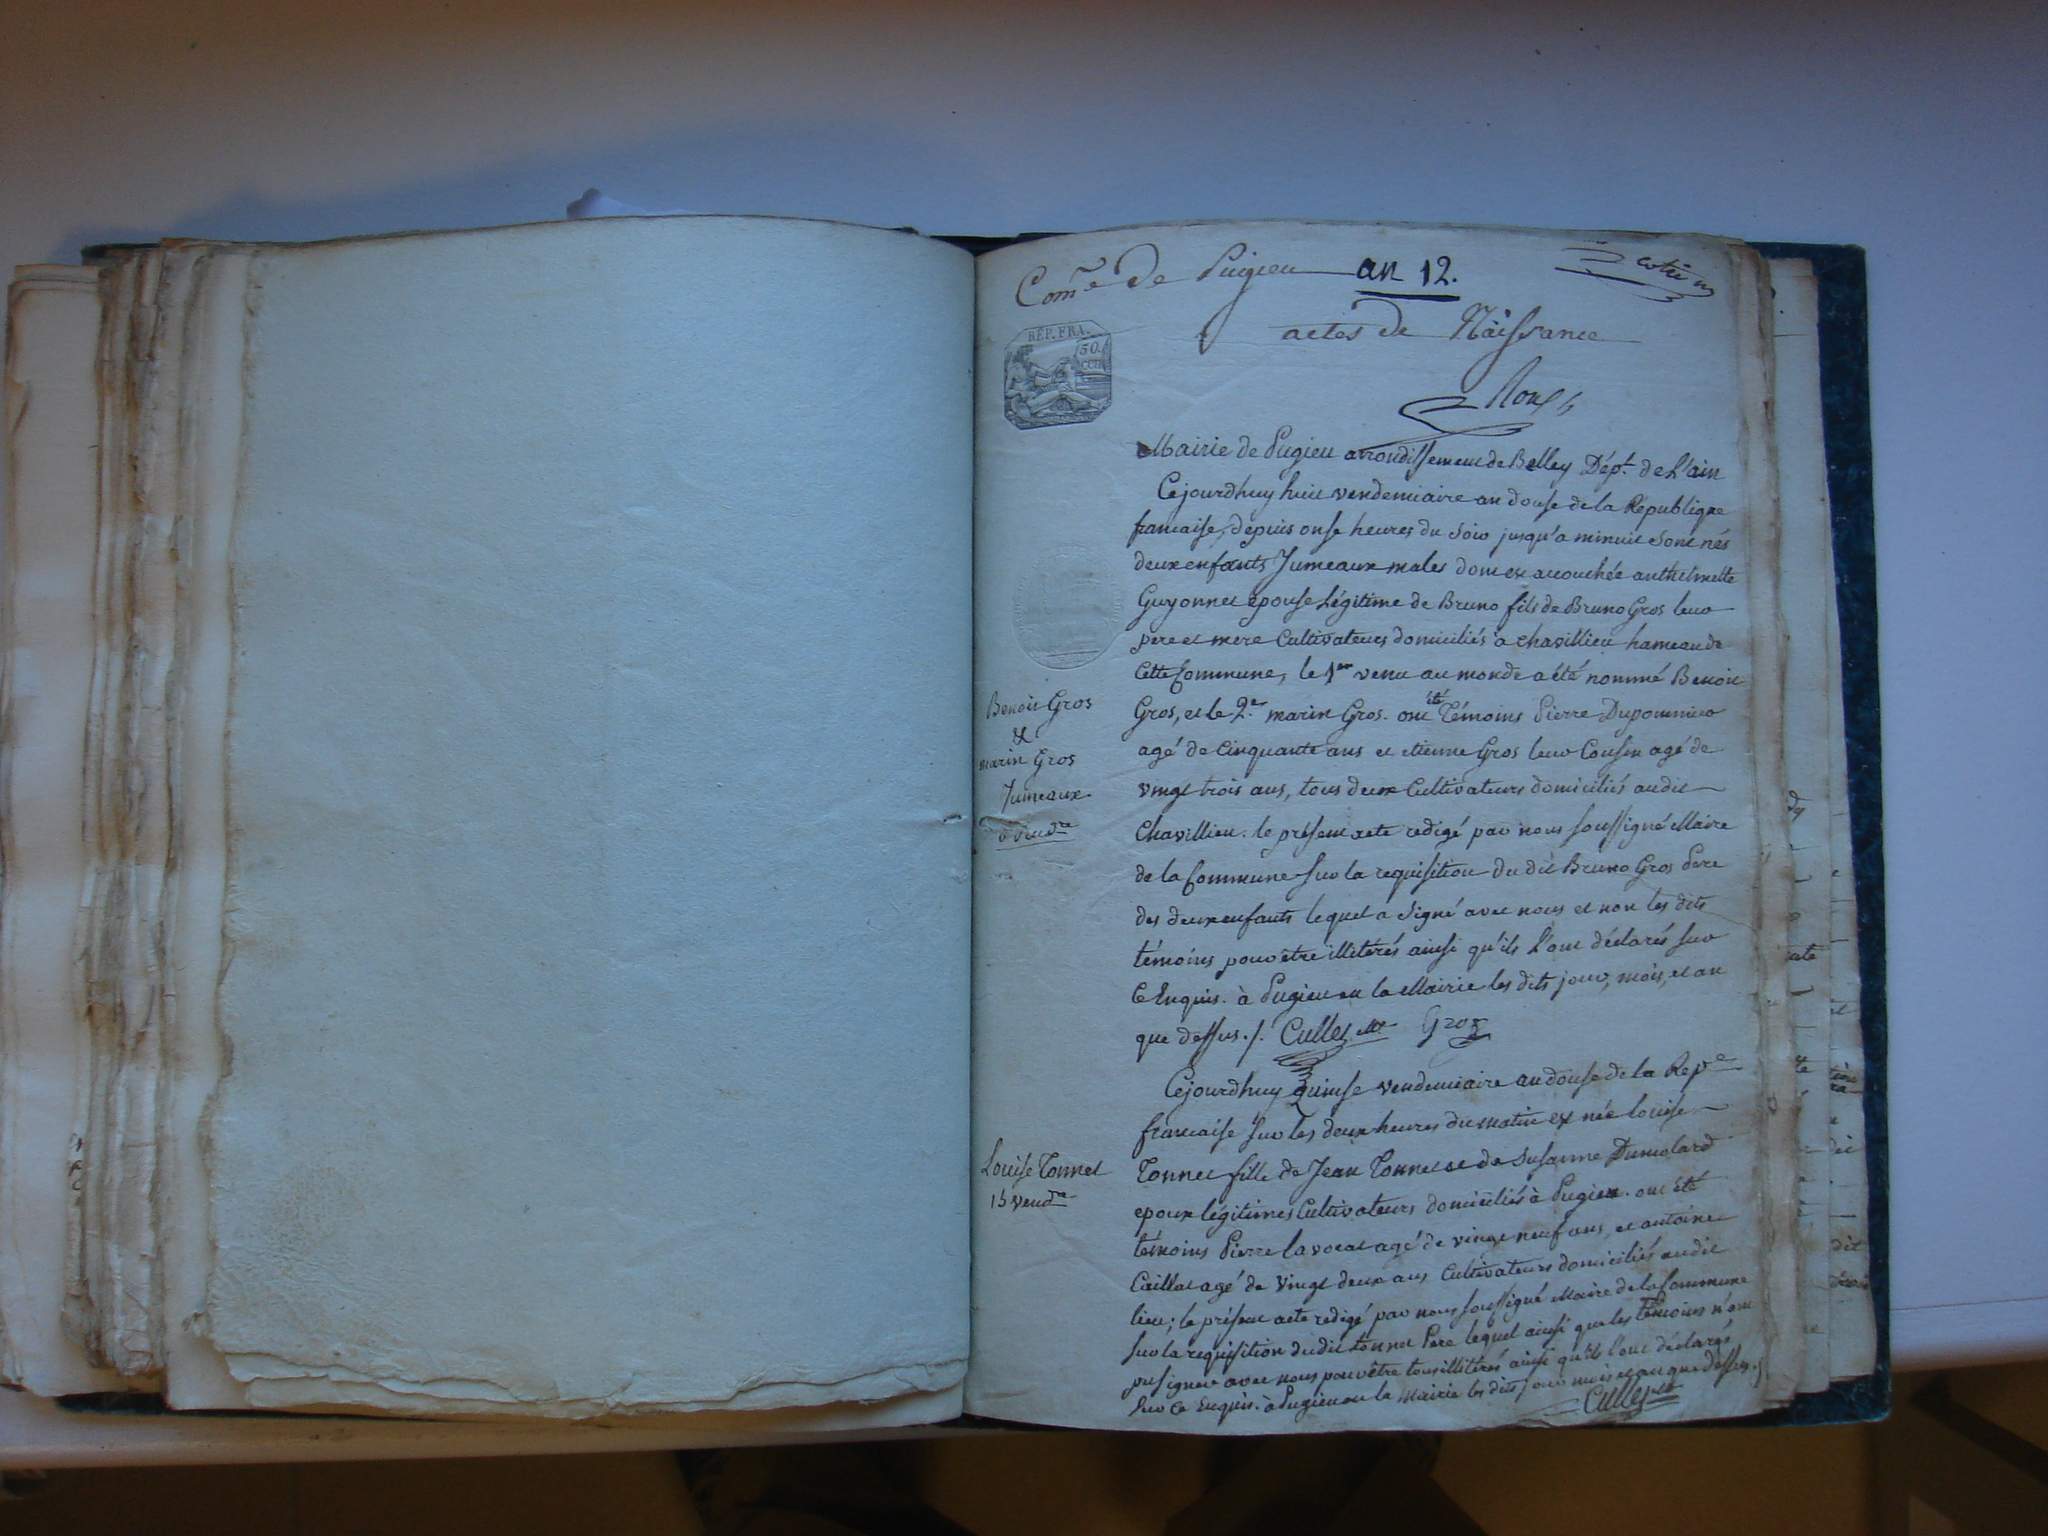 Com.e de Puigieu an 12.
actes de Naissance
REP. FRA.
50
CEN
Mairie de Pugieu arrondissement de Belley Dépt. de L'ain
Cejourdhuy huit vendemiaire an douse de la Republique
francaise, depuis onse heures du soir jusqu'a minuit sont nés
deux enfants Jumeaux males dont est acouchée anthelmette
Guyonnet epouse Légitime de Bruno fils de Bruno Gros leur
pere et mere Cultivateurs domiciliés a chavillieu hameau de
Cette Commune, le 1er venu au monde a été nommé Benoit
Gros, et le 2.e marin Gros. ont été Témoins Pierre
agé de Cinquante ans et etienne Gros leur Cousin agé de
vingt trois ans, tous deux Cultivateurs domiciliés audit
Chavillieu. le présent acte redigé par nous soussigné Maire
de la Commune sur la requisition du dit Bruno Gros Pere
des deux enfants lequel a signé avec nous et non les dits
témoins pour être illiterés ainsi qu'ils l'ont déclarés sur
Ce Enquis. à Pugieu en la Mairie les dits jour, mois, et an
que dessus ./. Cullet Mre Gros
Benoit Gros
&
marin Gros
Jumeaux
vendre
Cejourdhuy quinse vendemiaire an douse de la Repe
francaise sur les deux heures du matin est née louise
Tonnet fille de Jean Tonnet et de Susanne Dumolard
epoux légitimes Cultivateurs domiciliés à Pugieu. ont été
témoins Pierre lavocat agé de vingt neuf ans, et antoine
Caillat agé de vingt deux ans Cultivateurs domiciliés audit
lieu; le présent acte redigé par nous soussigné Maire de la Commune
sur la requisition dudit tonnet Pere lequel ainsi que les Témoins n'ont
pu signer avec nous pour être tous illiterés ainsi qu'ils l'ont déclarés
sur ce Enquis. à Pugieu en la Mairie les dits jour mois et an que dessus ./.
Cullet Mre
Louise Tonnet
15 vendre